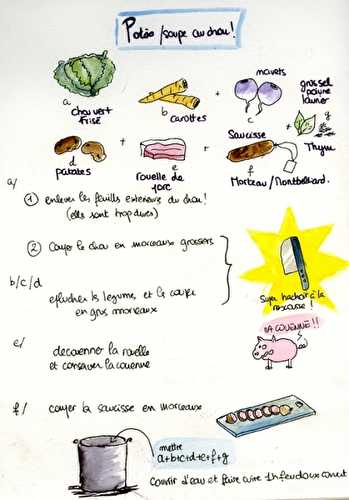 Potée/soupe au chou!
navets
gros sel
poivre
laurier
a
chou vert
frisé
+
b
carottes
+
c
+
g
Thym
d
patates
+
e
rouelle de
porc
+
Saucisse
f
Morteau/Montbéliard.
a/
① enlever les feuilles exterieures du chou!
(elles sont trop dures)
② Couper le chou en morceaux grossiers
b/c/d
eplucher les legumes, et les couper
en gros morceaux
Super hachoir à la
rescousse!
e/
decouenner la rouelle
et conserver la couenne
MA COUENNE!!
f/
couper la saucisse en morceaux
mettre
a+b+c+d+e+f+g
couvrir d'eau et faire cuire 1h feu doux couvert